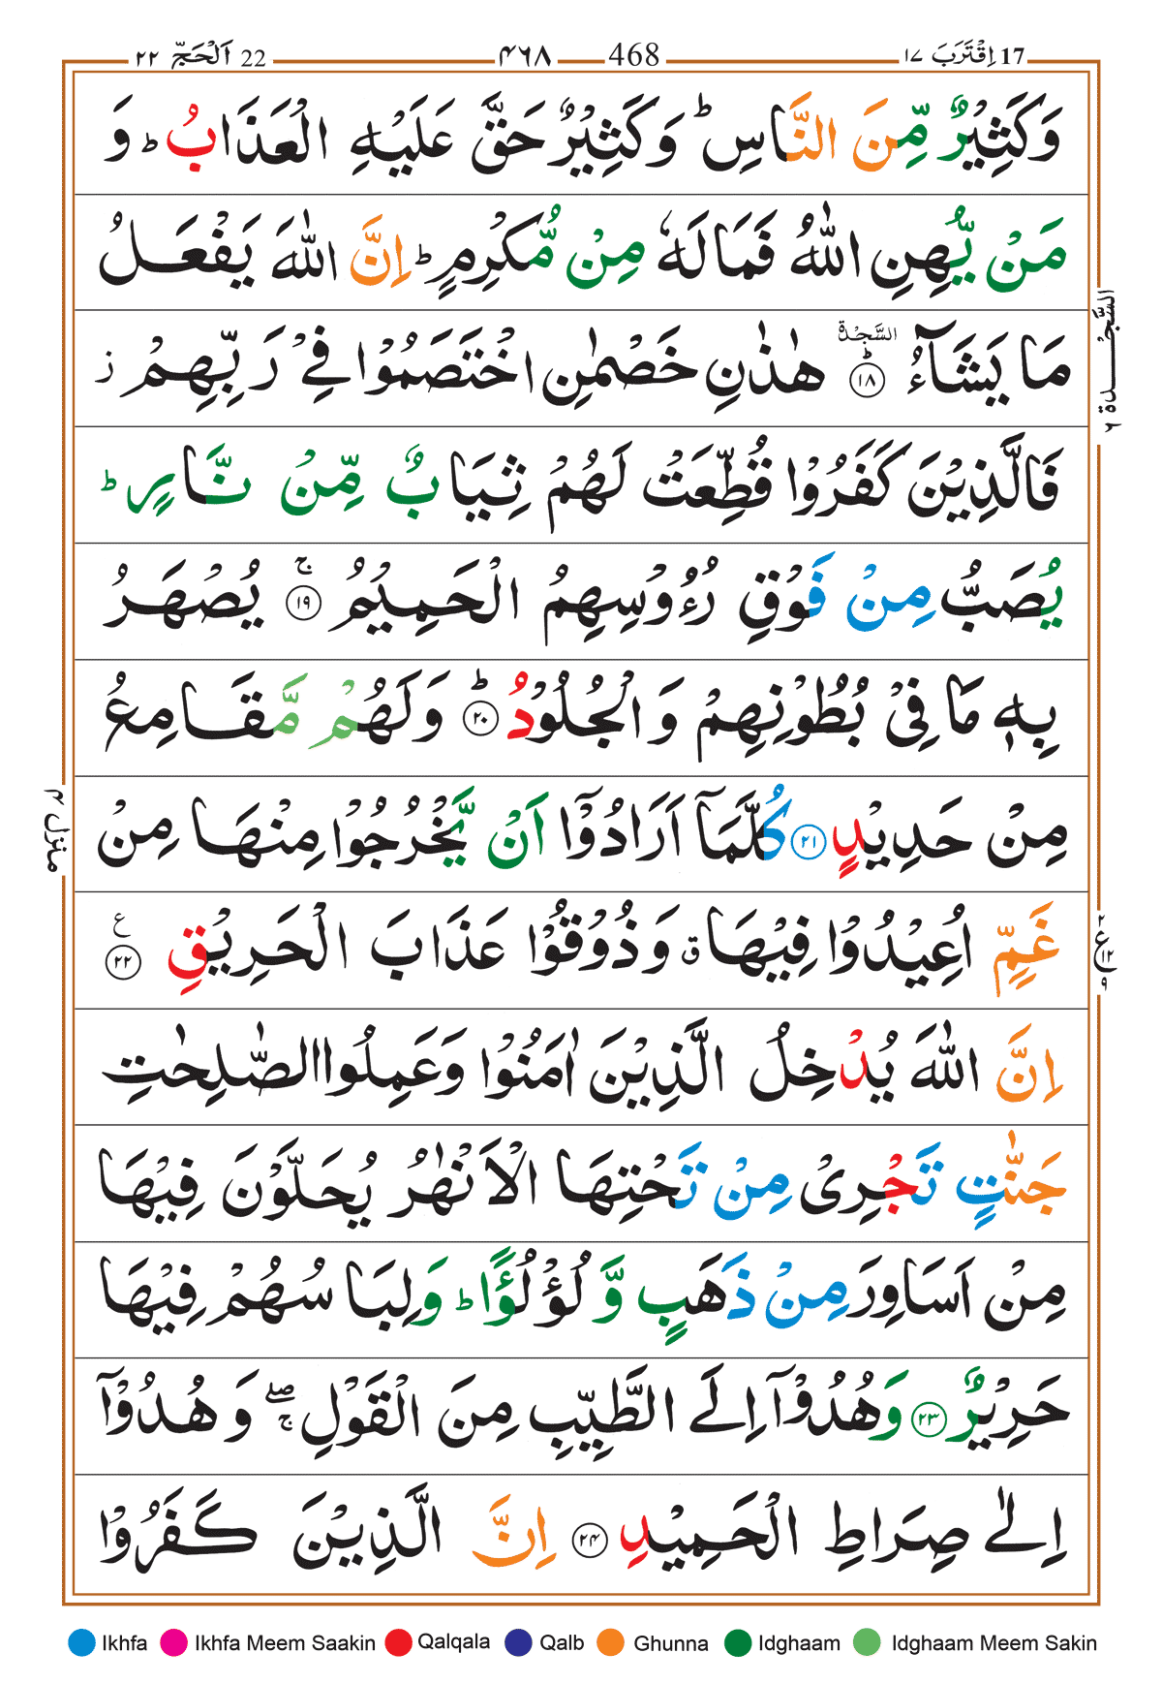 17 اِقْتَرَبَ ١٧
468 ۴۶۸
22 اَلْحَجّ ٢٢
وَكَثِيْرٌ مِّنَ النَّاسِ ؕ وَكَثِيْرٌ حَقَّ عَلَيْهِ الْعَذَابُ ؕ وَ
مَنْ يُّهِنِ اللّٰهُ فَمَا لَهٗ مِنْ مُّكْرِمٍ ؕ اِنَّ اللّٰهَ يَفْعَلُ
مَا يَشَآءُ ؕ السَّجْدَة ١٨ هٰذٰنِ خَصْمٰنِ اخْتَصَمُوْا فِيْ رَبِّهِمْ ز
فَالَّذِيْنَ كَفَرُوْا قُطِّعَتْ لَهُمْ ثِيَابٌ مِّنْ نَّارٍ ؕ
يُصَبُّ مِنْ فَوْقِ رُءُوْسِهِمُ الْحَمِيْمُ ۚ ١٩ يُصْهَرُ
بِهٖ مَا فِيْ بُطُوْنِهِمْ وَالْجُلُوْدُ ؕ ٢٠ وَلَهُمْ مَّقَامِعُ
مِنْ حَدِيْدٍ ٢١ كُلَّمَآ اَرَادُوْٓا اَنْ يَّخْرُجُوْا مِنْهَا مِنْ
غَمٍّ اُعِيْدُوْا فِيْهَا ۃ وَذُوْقُوْا عَذَابَ الْحَرِيْقِ ع ٢٢
اِنَّ اللّٰهَ يُدْخِلُ الَّذِيْنَ اٰمَنُوْا وَعَمِلُوا الصّٰلِحٰتِ
جَنّٰتٍ تَجْرِيْ مِنْ تَحْتِهَا الْاَنْهٰرُ يُحَلَّوْنَ فِيْهَا
مِنْ اَسَاوِرَ مِنْ ذَهَبٍ وَّ لُؤْلُؤًا ؕ وَلِبَاسُهُمْ فِيْهَا
حَرِيْرٌ ٢٣ وَهُدُوْٓا اِلَى الطَّيِّبِ مِنَ الْقَوْلِ ۖۚ وَهُدُوْٓا
اِلٰى صِرَاطِ الْحَمِيْدِ ٢۴ اِنَّ الَّذِيْنَ كَفَرُوْا
السَّجْدَة ٦
منزل ۴
ع
Ikhfa Ikhfa Meem Saakin Qalqala Qalb Ghunna Idghaam Idghaam Meem Sakin